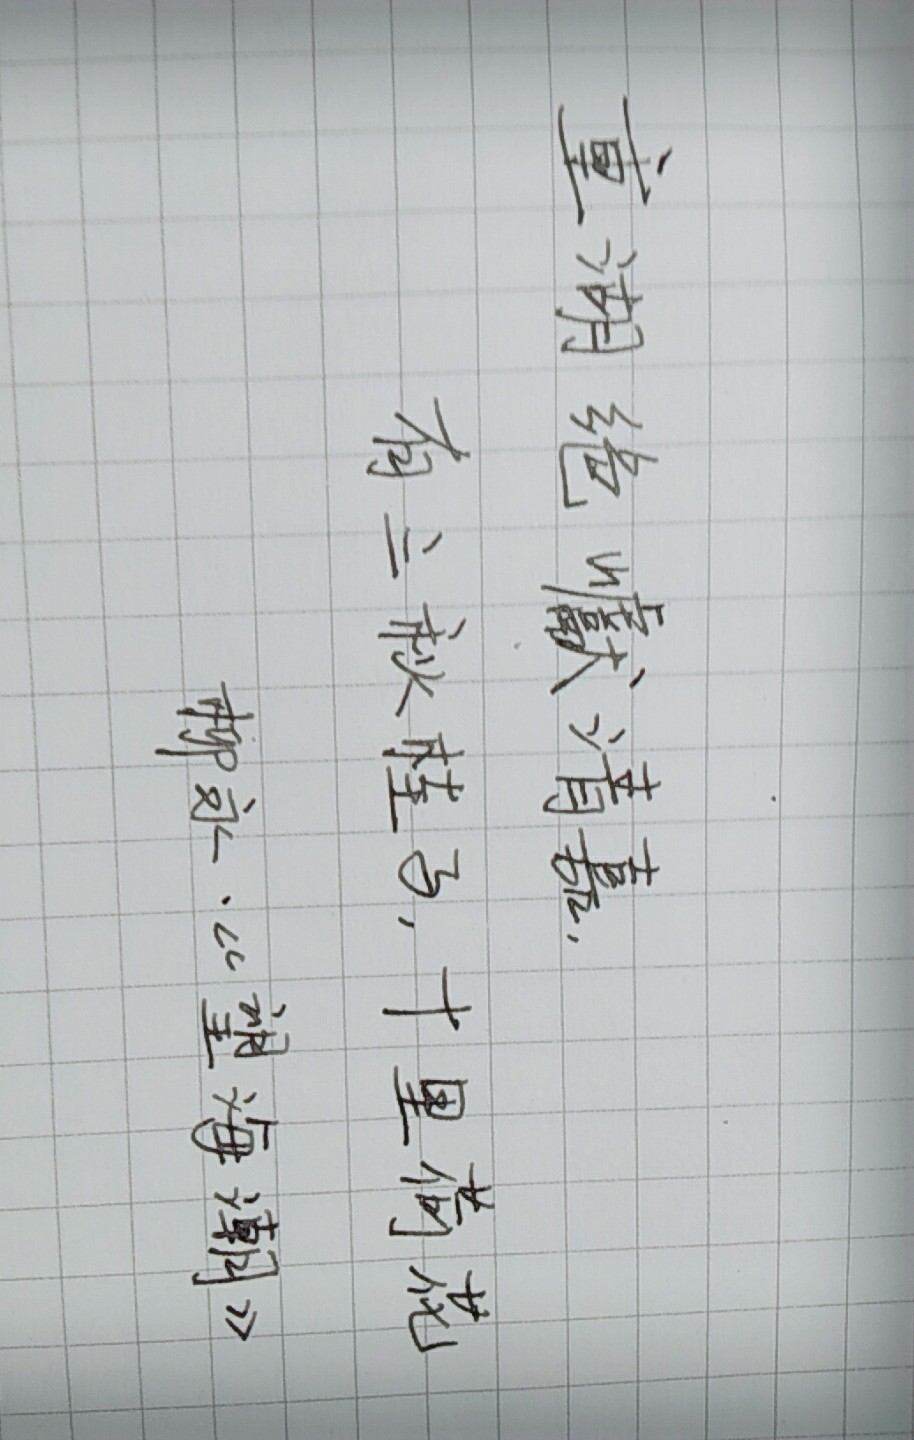 重湖绝巘清嘉,
有三秋桂子,十里荷花
柳永·《望海潮》